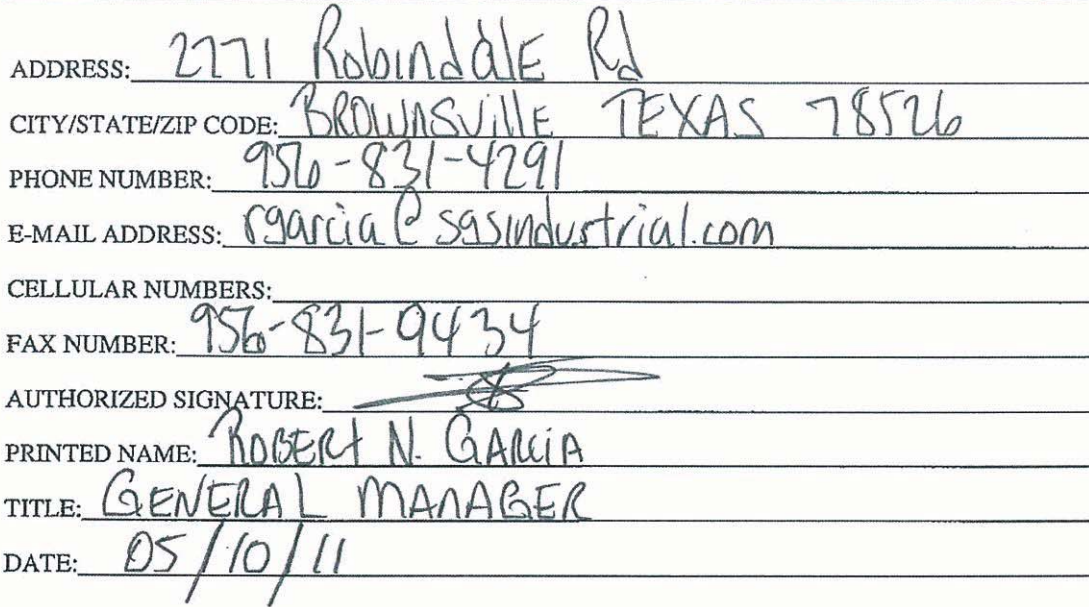 ADDRESS: 2771 Robindale Rd
CITY/STATE/ZIP CODE: BROWNSVillE TEXAS 78526
PHONE NUMBER: 956-831-4291
E-MAIL ADDRESS: rgarcia@sgsindustrial.com
CELLULAR NUMBERS:
FAX NUMBER: 956-831-9434
AUTHORIZED SIGNATURE:
PRINTED NAME: ROBERt N. GARCiA
TITLE: GENERAL MANAGER
DATE: 05/10/11